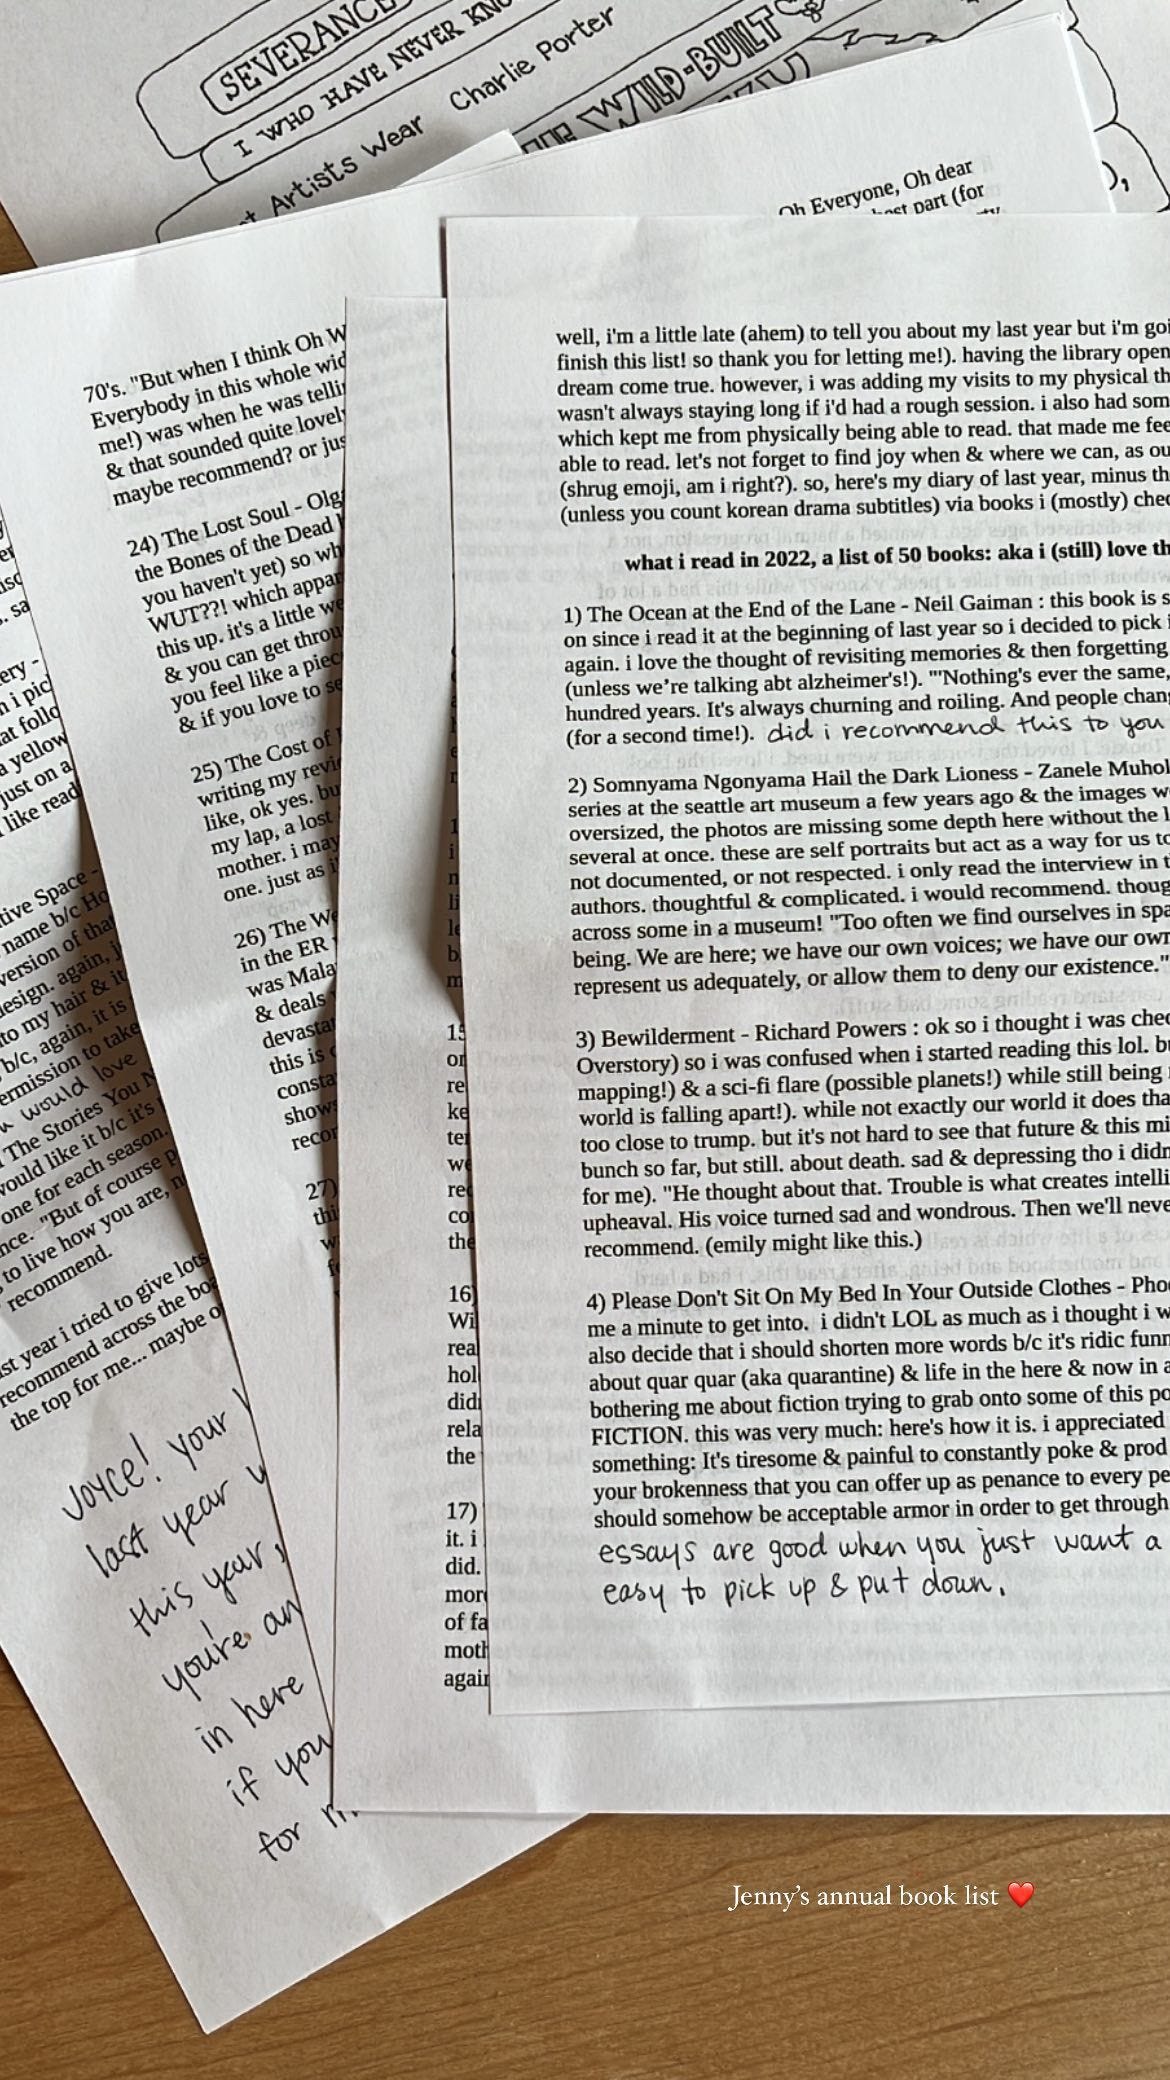 SEVERANCE
I WHO HAVE NEVER
Artists Wear Charlie Porter
WILD-BUILT
Oh Everyone, Oh dear
part (for
70's. "But when I think Oh W
Everybody in this whole wid
me!) was when he was telli
& that sounded quite lovel
maybe recommend? or jus
24) The Lost Soul - Olg
the Bones of the Dead
you haven't yet) so wh
WUT??! which appar
this up. it's a little we
& you can get throu
you feel like a piec
& if you love to se
25) The Cost of
writing my revi
like, ok yes. bu
my lap, a lost
mother. i may
one. just as i
26) The We
in the ER
was Mala
& deals
devastat
this is
consta
shows
recor
27)
thi
w
ery -
n i pic
at follo
a yellow
just on a
like read
tive Space -
name b/c Ho
version of that
design. again, j
to my hair & it
b/c, again, it is
ermission to take
would love
The Stories You N
would like it b/c it's
one for each season.
nce. "But of course p
to live how you are, n
recommend.
st year i tried to give lots
recommend across the boa
the top for me... maybe o
JOYCE! your
last year
this year,
you're an
in here
if you
for
15
or
re
ke
ter
we
rec
co
the
16)
Wi
rea
hol
did
rela
the
17)
it. i
did.
more
of fa
moth
again
well, i'm a little late (ahem) to tell you about my last year but i'm goi
finish this list! so thank you for letting me!). having the library open
dream come true. however, i was adding my visits to my physical th
wasn't always staying long if i'd had a rough session. i also had som
which kept me from physically being able to read. that made me fee
able to read. let's not forget to find joy when & where we can, as ou
(shrug emoji, am i right?). so, here's my diary of last year, minus th
(unless you count korean drama subtitles) via books i (mostly) chec
what i read in 2022, a list of 50 books: aka i (still) love th
1) The Ocean at the End of the Lane - Neil Gaiman : this book is s
on since i read it at the beginning of last year so i decided to pick i
again. i love the thought of revisiting memories & then forgetting
(unless we're talking abt alzheimer's!). "'Nothing's ever the same,
hundred years. It's always churning and roiling. And people chang
(for a second time!). did i recommend this to you
2) Somnyama Ngonyama Hail the Dark Lioness - Zanele Muhol
series at the seattle art museum a few years ago & the images w
oversized, the photos are missing some depth here without the l
several at once. these are self portraits but act as a way for us to
not documented, or not respected. i only read the interview in t
authors. thoughtful & complicated. i would recommend. thoug
across some in a museum! "Too often we find ourselves in spa
being. We are here; we have our own voices; we have our own
represent us adequately, or allow them to deny our existence."
3) Bewilderment - Richard Powers : ok so i thought i was chec
Overstory) so i was confused when i started reading this lol. bu
mapping!) & a sci-fi flare (possible planets!) while still being
world is falling apart!). while not exactly our world it does tha
too close to trump. but it's not hard to see that future & this mi
bunch so far, but still. about death. sad & depressing tho i didn
for me). "He thought about that. Trouble is what creates intelli
upheaval. His voice turned sad and wondrous. Then we'll neve
recommend. (emily might like this.)
4) Please Don't Sit On My Bed In Your Outside Clothes - Phoe
me a minute to get into. i didn't LOL as much as i thought i w
also decide that i should shorten more words b/c it's ridic funn
about quar quar (aka quarantine) & life in the here & now in a
bothering me about fiction trying to grab onto some of this po
FICTION. this was very much: here's how it is. i appreciated
something: It's tiresome & painful to constantly poke & prod
your brokenness that you can offer up as penance to every pe
should somehow be acceptable armor in order to get through
essays are good when you just want a
easy to pick up & put down.
Jenny's annual book list ❤️